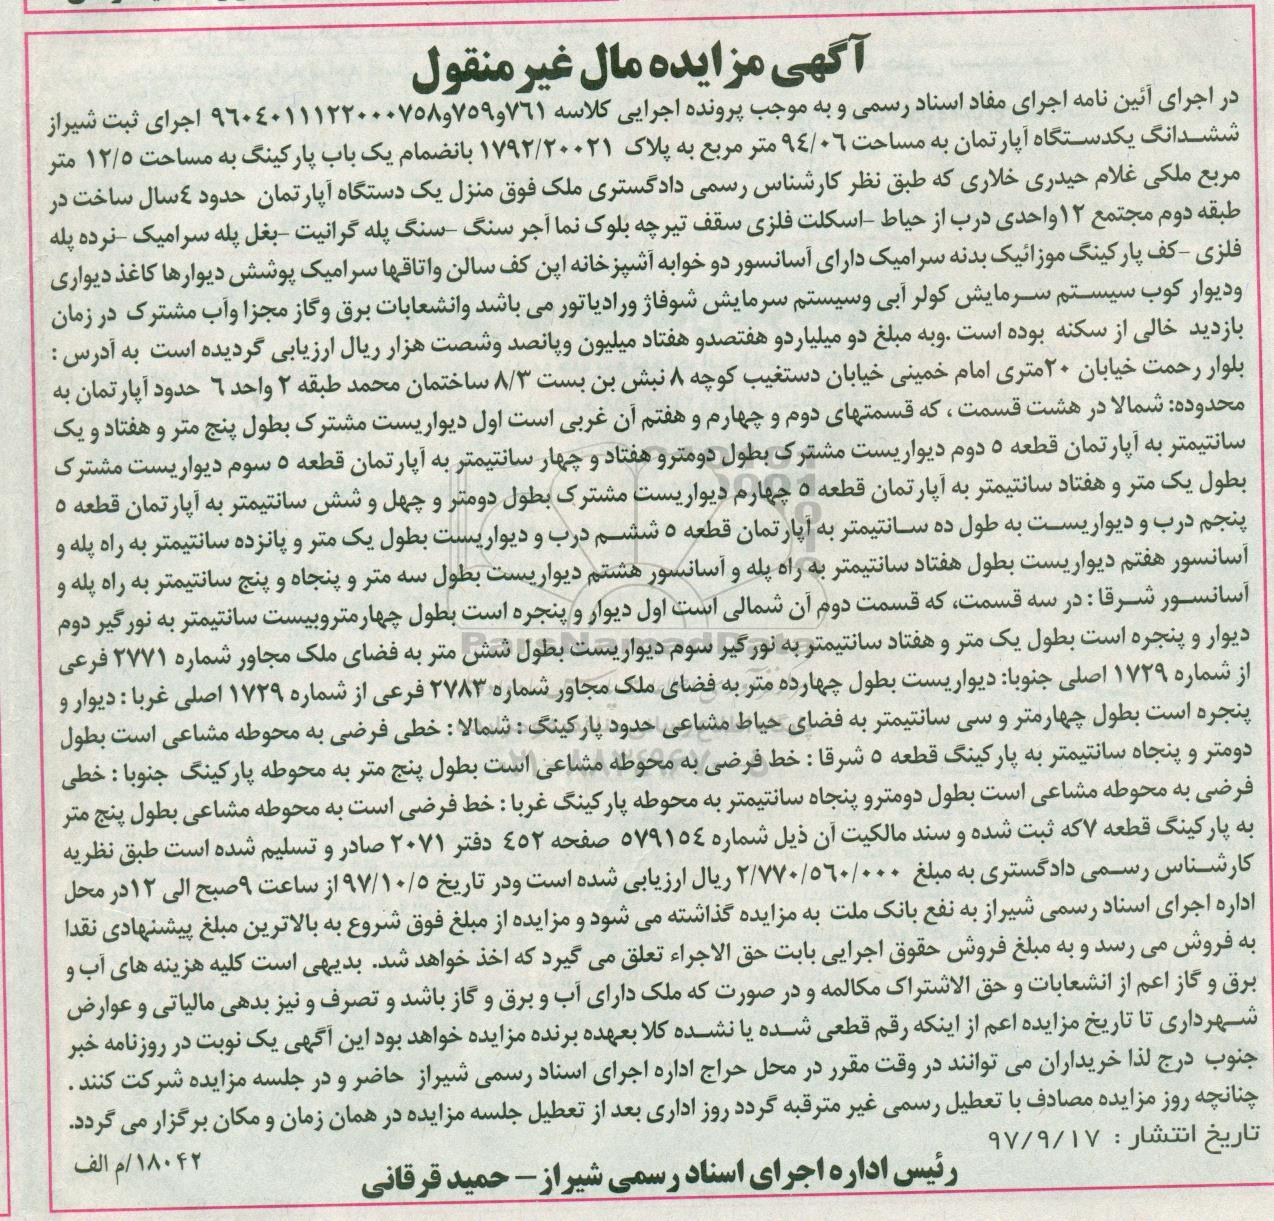 آگهی مزایده مال غیر منقول
در اجرای آئین نامه اجرای مفاد اسناد رسمی و به موجب پرونده اجرایی کلاسه ۷۶۱و۷۵۹و۹۶۰۴۰۱۱۱۲۲۰۰۰۷۵۸ اجرای ثبت شیراز
ششدانگ یکدستگاه آپارتمان به مساحت ۹٤/۰۶ متر مربع به پلاک ۱۷۹۲/۲۰۰۲۱ بانضمام یک باب پارکینگ به مساحت ۱۲/۵ متر
مربع ملکی غلام حیدری خلاری که طبق نظر کارشناس رسمی دادگستری ملک فوق منزل یک دستگاه آپارتمان حدود ٤سال ساخت در
طبقه دوم مجتمع ۱۲واحدی درب از حیاط -اسکلت فلزی سقف تیرچه بلوک نما آجر سنگ -سنگ پله گرانیت -بغل پله سرامیک -نرده پله
فلزی -کف پارکینگ موزائیک بدنه سرامیک دارای آسانسور دو خوابه آشپزخانه اپن کف سالن واتاقها سرامیک پوشش دیوارها کاغذ دیواری
ودیوار کوب سیستم سرمایش کولر آبی وسیستم سرمایش شوفاژ ورادیاتور می باشد وانشعابات برق وگاز مجزا وآب مشترک در زمان
بازدید خالی از سکنه بوده است .وبه مبلغ دو میلیاردو هفتصدو هفتاد میلیون وپانصد وشصت هزار ریال ارزیابی گردیده است به آدرس :
بلوار رحمت خیابان ۲۰متری امام خمینی خیابان دستغیب کوچه ۸ نبش بن بست ۸/۳ ساختمان محمد طبقه ۲ واحد ٦ حدود آپارتمان به
محدوده: شمالا در هشت قسمت ، که قسمتهای دوم و چهارم و هفتم آن غربی است اول دیواریست مشترک بطول پنج متر و هفتاد و یک
سانتیمتر به آپارتمان قطعه ۵ دوم دیواریست مشترک بطول دومترو هفتاد و چهار سانتیمتر به آپارتمان قطعه ۵ سوم دیواریست مشترک
بطول یک متر و هفتاد سانتیمتر به آپارتمان قطعه ۵ چهارم دیواریست مشترک بطول دومتر و چهل و شش سانتیمتر به آپارتمان قطعه ۵
پنجم درب و دیواریست به طول ده سانتیمتر به آپارتمان قطعه ۵ ششم درب و دیواریست بطول یک متر و پانزده سانتیمتر به راه پله و
آسانسور هفتم دیواریست بطول هفتاد سانتیمتر به راه پله و آسانسور هشتم دیواریست بطول سه متر و پنجاه و پنج سانتیمتر به راه پله و
آسانسور شرقا : در سه قسمت، که قسمت دوم آن شمالی است اول دیوار و پنجره است بطول چهارمتروبیست سانتیمتر به نورگیر دوم
دیوار و پنجره است بطول یک متر و هفتاد سانتیمتر به نورگیر سوم دیواریست بطول شش متر به فضای ملک مجاور شماره ۲۷۷۱ فرعی
از شماره ۱۷۲۹ اصلی جنوبا: دیواریست بطول چهارده متر به فضای ملک مجاور شماره ۲۷۸۳ فرعی از شماره ۱۷۲۹ اصلی غربا : دیوار و
پنجره است بطول چهارمتر و سی سانتیمتر به فضای حیاط مشاعی حدود پارکینگ : شمالا : خطی فرضی به محوطه مشاعی است بطول
دومتر و پنجاه سانتیمتر به پارکینگ قطعه ۵ شرقا : خط فرضی به محوطه مشاعی است بطول پنج متر به محوطه پارکینگ جنوبا : خطی
فرضی به محوطه مشاعی است بطول دومترو پنجاه سانتیمتر به محوطه پارکینگ غربا : خط فرضی است به محوطه مشاعی بطول پنج متر
به پارکینگ قطعه ۷که ثبت شده و سند مالکیت آن ذیل شماره ۵۷۹۱۵٤ صفحه ٤۵۲ دفتر ۲۰۷۱ صادر و تسلیم شده است طبق نظریه
کارشناس رسمی دادگستری به مبلغ ۲/۷۷۰/۵٦۰/۰۰۰ ریال ارزیابی شده است ودر تاریخ ۹۷/۱۰/۵ از ساعت ۹صبح الی ۱۲در محل
اداره اجرای اسناد رسمی شیراز به نفع بانک ملت به مزایده گذاشته می شود و مزایده از مبلغ فوق شروع به بالاترین مبلغ پیشنهادی نقدا
به فروش می رسد و به مبلغ فروش حقوق اجرایی بابت حق الاجراء تعلق می گیرد که اخذ خواهد شد. بدیهی است کلیه هزینه های آب و
برق و گاز اعم از انشعابات و حق الاشتراک مکالمه و در صورت که ملک دارای آب و برق و گاز باشد و تصرف و نیز بدهی مالیاتی و عوارض
شهرداری تا تاریخ مزایده اعم از اینکه رقم قطعی شده یا نشده کلا بعهده برنده مزایده خواهد بود این آگهی یک نوبت در روزنامه خبر
جنوب درج لذا خریداران می توانند در وقت مقرر در محل حراج اداره اجرای اسناد رسمی شیراز حاضر و در جلسه مزایده شرکت کنند .
چنانچه روز مزایده مصادف با تعطیل رسمی غیر مترقبه گردد روز اداری بعد از تعطیل جلسه مزایده در همان زمان و مکان برگزار می گردد.
تاریخ انتشار : ۹۷/۹/۱۷
۱۸۰۴۲/م الف
رئیس اداره اجرای اسناد رسمی شیراز - حمید قرقانی
ParsNamadData